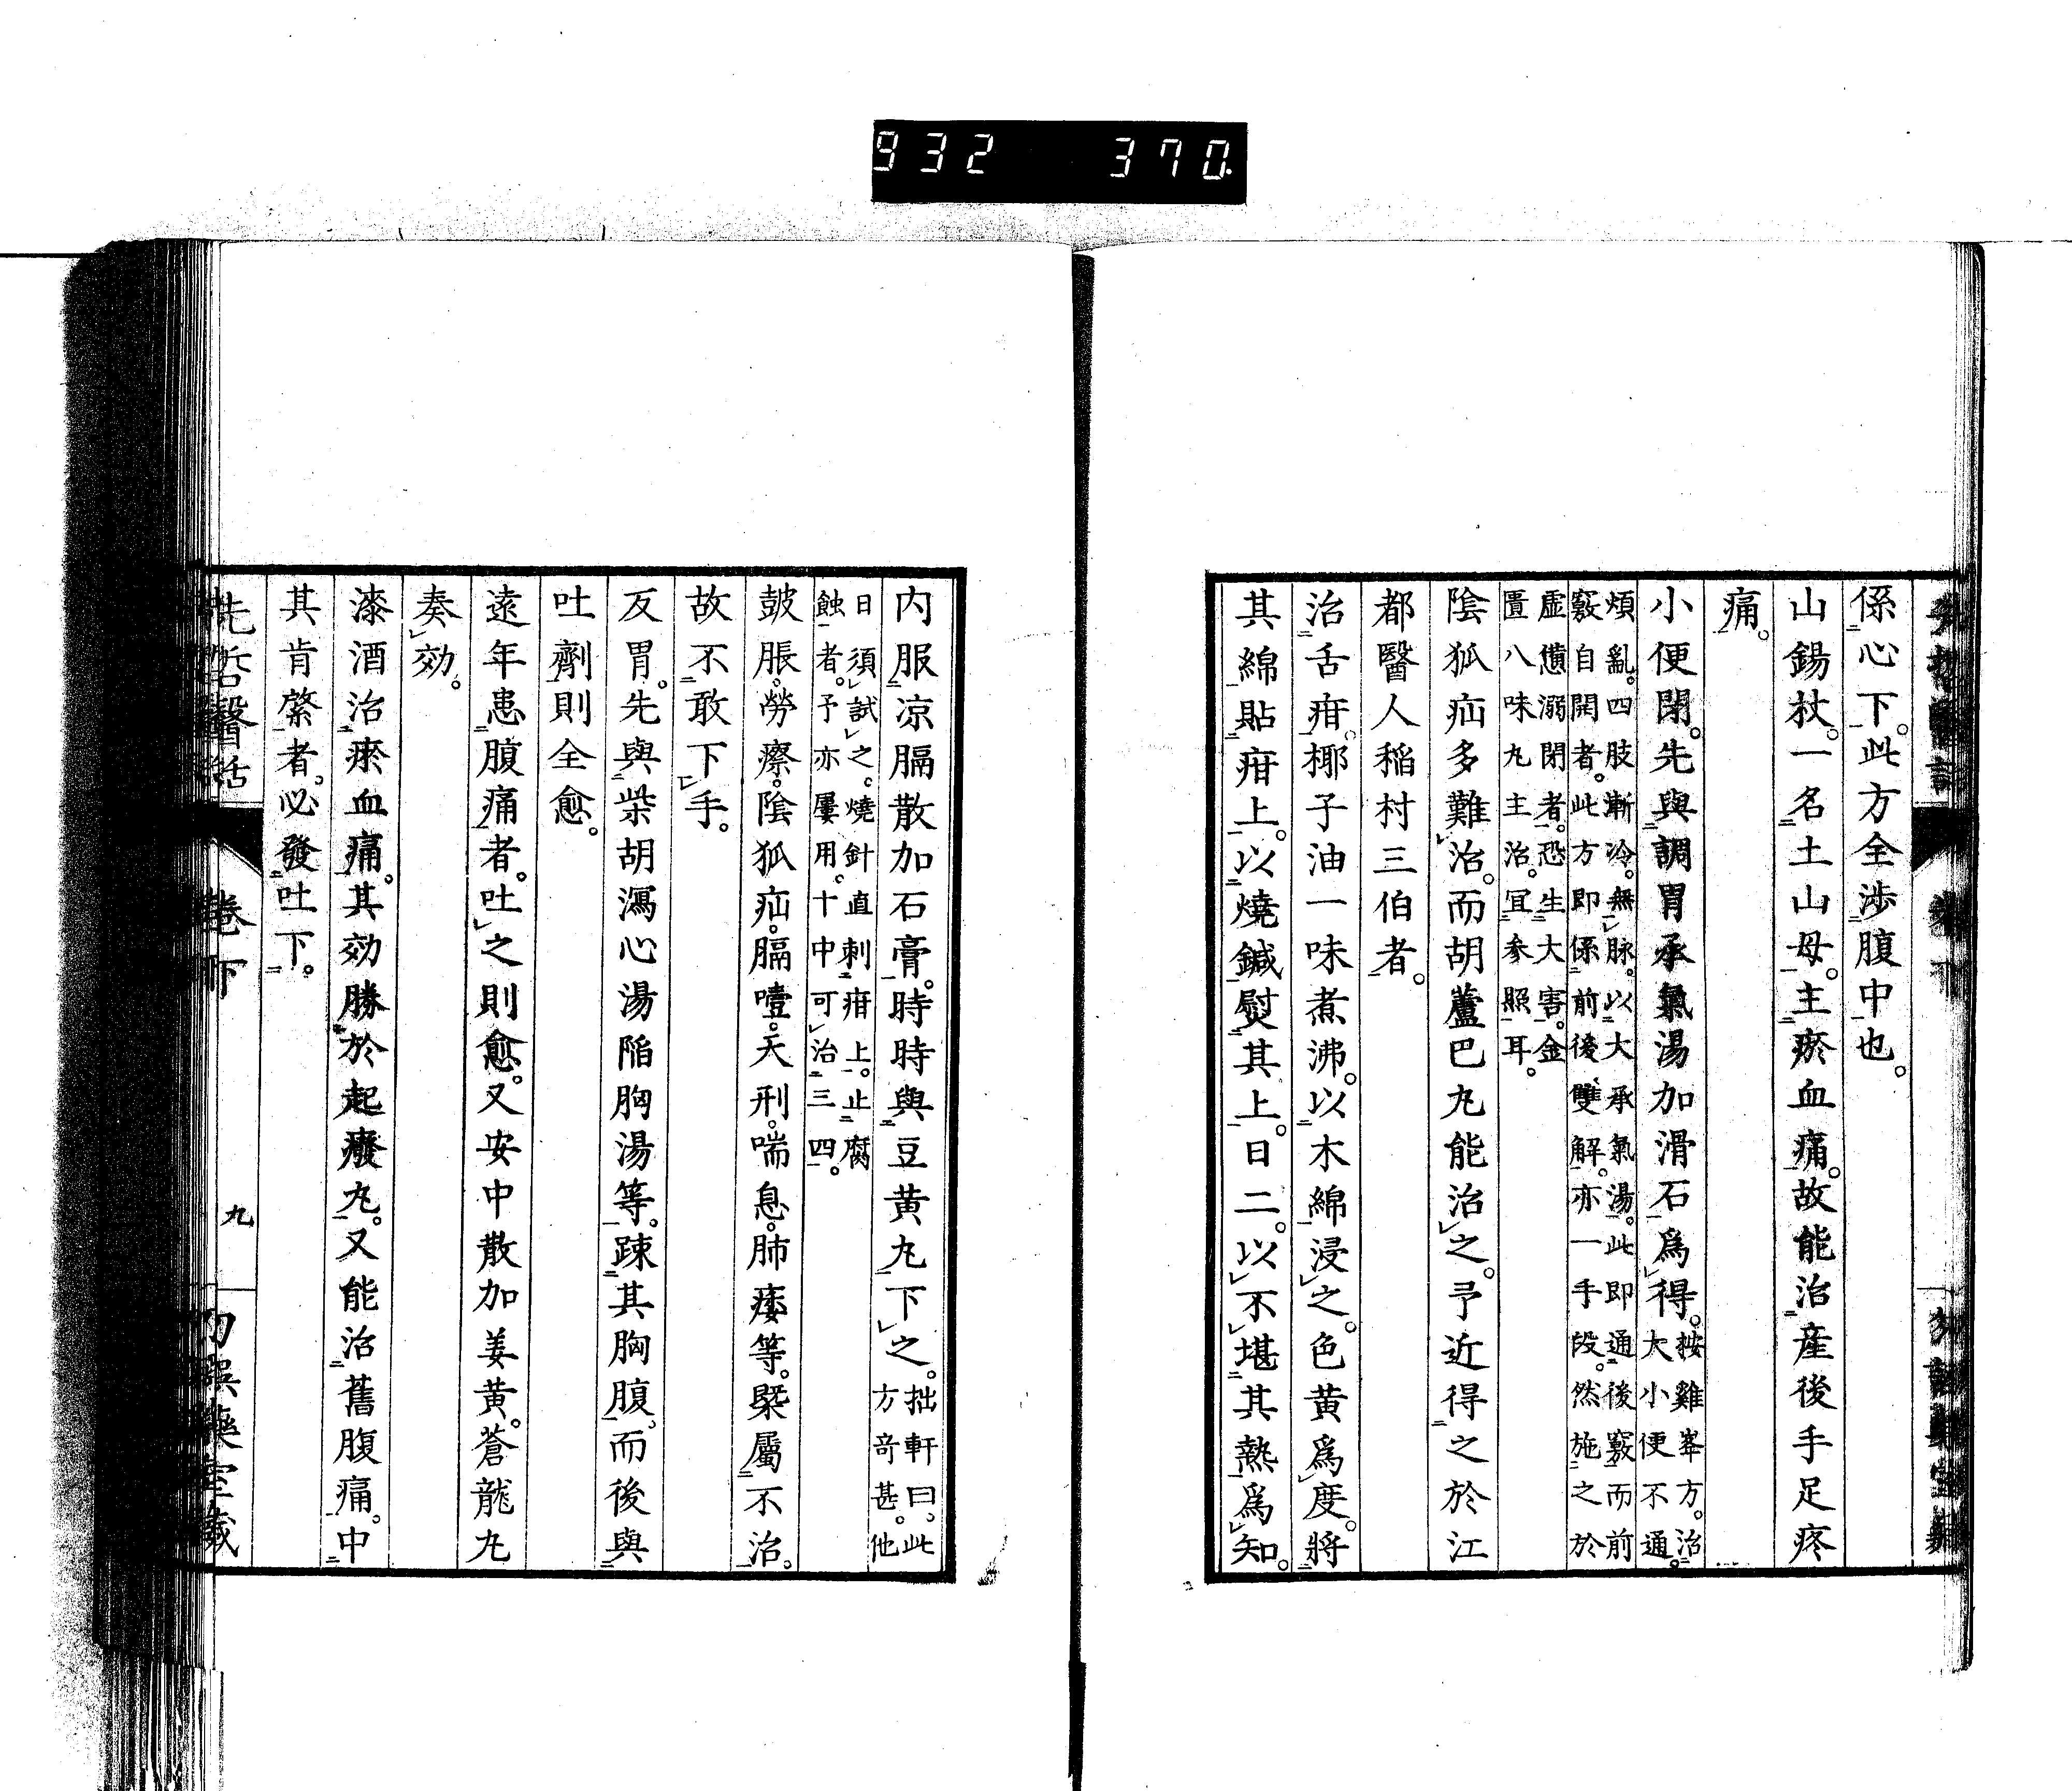 932 370.
係心下。此方全涉腹中也。
山錫杖。一名土山母。主瘀血痛。故能治産後手足疼
痛。
小便閉。先與調胃承氣湯加滑石爲得。按雞峯方。治
大小便不通。
煩亂。四肢漸冷。無脉。以大承氣湯。此即通後竅而前
竅自開者。此方即係前後雙解。亦一手段。然施之於
虛憊溺閉者。恐生大害。金
匱八味丸主治。宜參照耳。
陰狐疝多難治。而胡蘆巴丸能治之。予近得之於江
都醫人稲村三伯者。
治舌疳。椰子油一味煮沸。以木綿浸之。色黄爲度。將
其綿貼疳上。以燒鍼熨其上。日二。以不堪其熱爲知。
内服凉膈散加石膏。時時與豆黄丸下之。拙軒曰、此
方奇甚。他
日須試之。燒針直刺疳上。止腐
蝕者。予亦屢用。十中可治三四。
皷脹。勞瘵。陰狐疝。膈噎。天刑。喘息。肺痿等。槩屬不治。
故不敢下手。
反胃。先與柴胡瀉心湯陷胸湯等。踈其胸腹。而後與
吐劑則全愈。
遠年患腹痛者。吐之則愈。又安中散加姜黄。蒼龍丸
奏効。
漆酒治瘀血痛。其効勝於起癈丸。又能治舊腹痛。中
其肯綮者。必發吐下。
先哲醫話
卷下
九